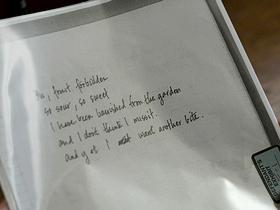 , fruit forbidden
so sour, so sweet
I have been banished from the garden
and I don't think I miss it.
and yet I want another bite.